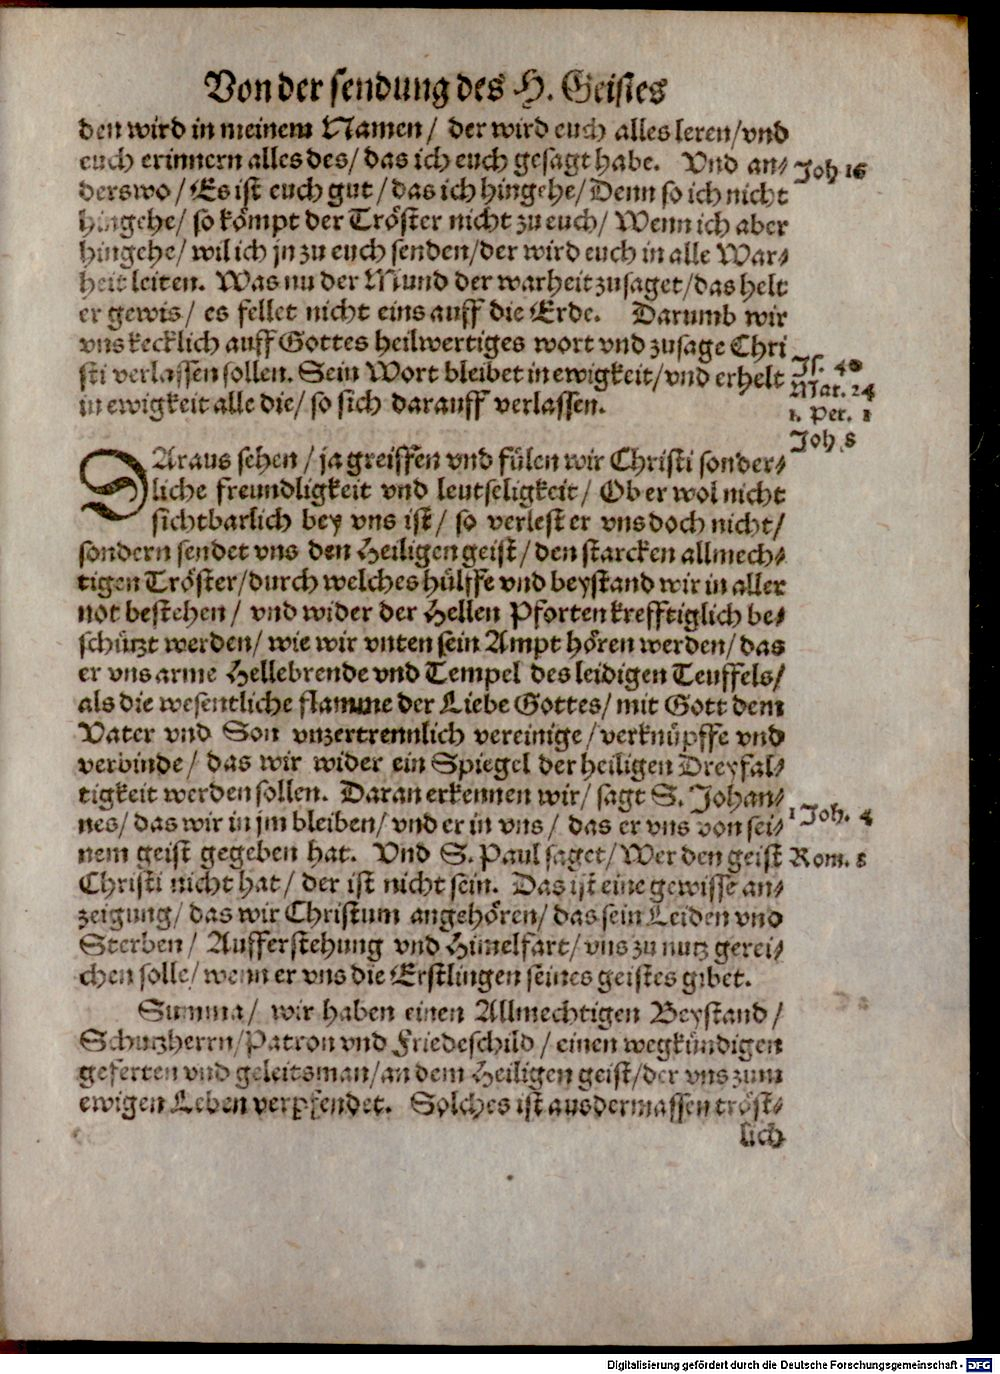 Von der sendung des H. Geistes
den wird in meinem Namen / der wird euch alles leren / vnd
euch erinnern alles des / das ich euch gesagt habe. Vnd an-
Joh 16
derswo / Es ist euch gut / das ich hingehe / Denn so ich nicht
hingehe / so kömpt der Tröster nicht zu euch / Wenn ich aber
hingehe / wil ich jn zu euch senden / der wird euch in alle War-
heit leiten. Was nu der Mund der warheit zusaget / das helt
er gewis / es fellet nicht eins auff die Erde. Darumb wir
vns kecklich auff Gottes heilwertiges wort vnd zusage Chri
sti verlassen sollen. Sein Wort bleibet in ewigkeit / vnd erhelt
Js. 40
Mar. 24
in ewigkeit alle die / so sich darauff verlassen.
1. Pet. 1
Joh 8
DAraus sehen / ja greiffen vnd fülen wir Christi sonder-
liche freundligkeit vnd leutseligkeit / Ob er wol nicht
sichtbarlich bey vns ist / so verlest er vns doch nicht /
sondern sendet vns den Heiligen geist / den starcken allmech-
tigen Tröster / durch welches hülffe vnd beystand wir in aller
not bestehen / vnd wider der Hellen Pforten krefftiglich be-
schützt werden / wie wir vnten sein Ampt hören werden / das
er vns arme Hellebrende vnd Tempel des leidigen Teuffels /
als die wesentliche flamme der Liebe Gottes / mit Gott dem
Vater vnd Son vnzertrennlich vereinige / verknüpffe vnd
verbinde / das wir wider ein Spiegel der heiligen Dreyfal-
tigkeit werden sollen. Daran erkennen wir / sagt S. Johan-
nes / das wir in jm bleiben / vnd er in vns / das er vns von sei-
1 Joh. 4
nem geist gegeben hat. Vnd S. Paul saget / Wer den geist
Rom. 8
Christi nicht hat / der ist nicht sein. Das ist eine gewisse an-
zeigung / das wir Christum angehören / das sein Leiden vnd
Sterben / Aufferstehung vnd Himelfart / vns zu nutz gerei-
chen solle / wenn er vns die Erstlingen seines geistes gibet.
Summa / wir haben einen Allmechtigen Beystand /
Schutzherrn / Patron vnd Friedeschild / einen wegkündigen
geferten vnd geleitsman / an dem Heiligen geist / der vns zum
ewigen Leben verpfendet. Solches ist ausdermassen tröst-
lich
Digitalisierung gefördert durch die Deutsche Forschungsgemeinschaft - DFG